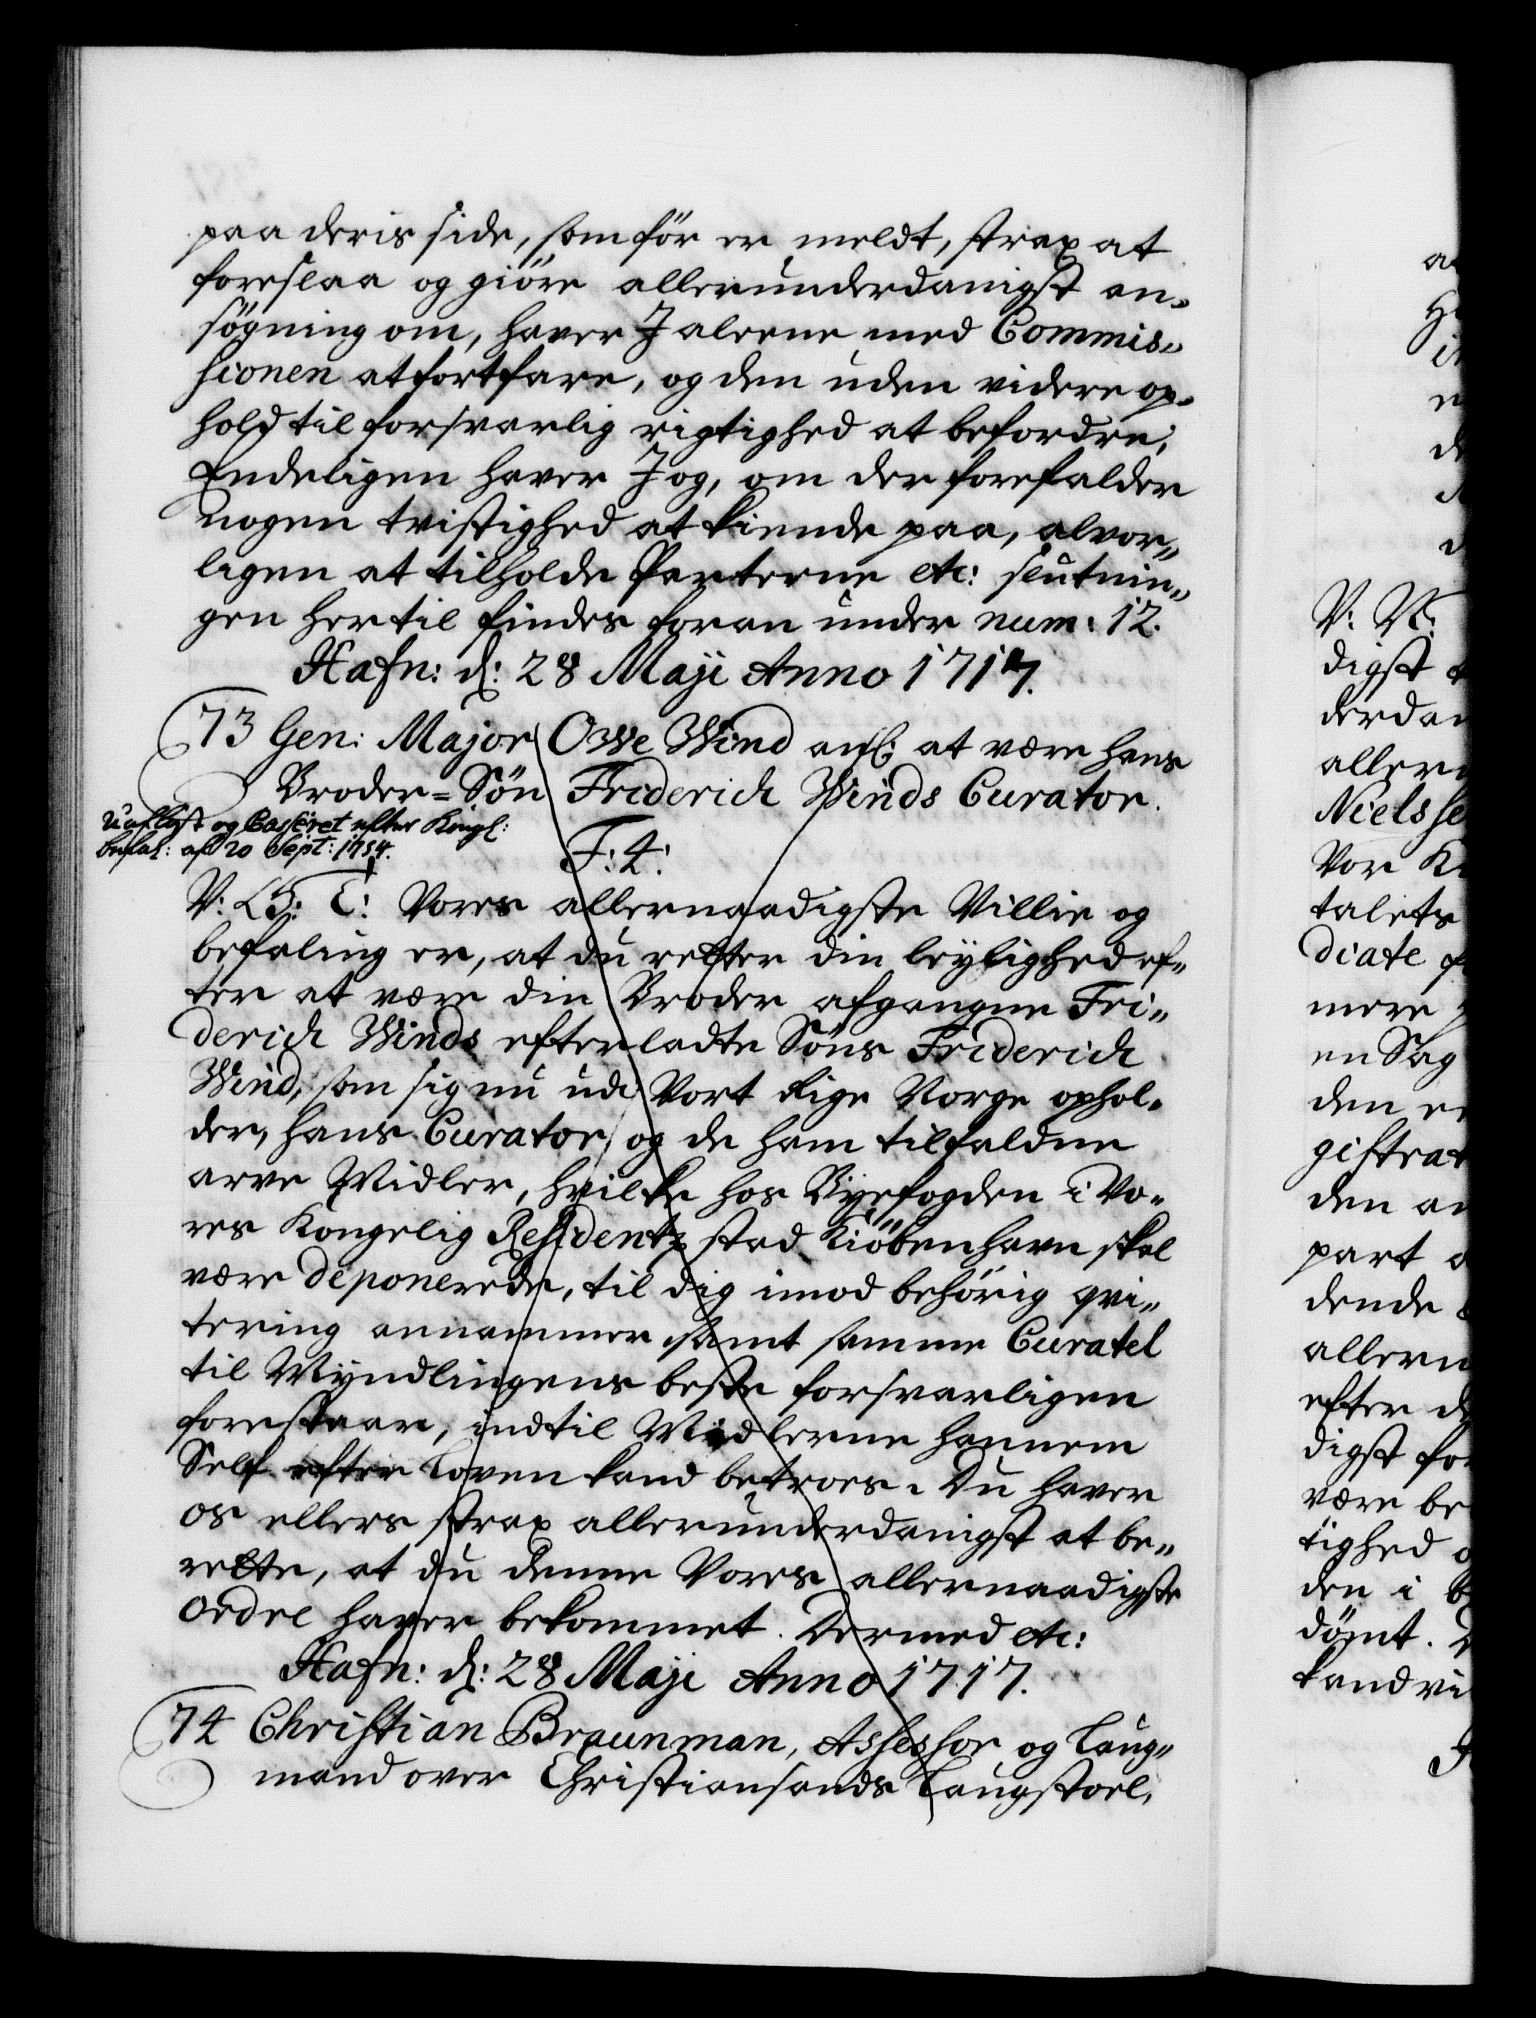 paa deris side, som för er meldt, strax at
foreslaa og giöre allerunderdanigst an-
søgning om, haver I aleene med Commis-
sionen at fortfare, og den uden videre op-
hold til forsvarlig rigtighed at befordre,
Endeligen haver I og, om der forefalder
nogen tvistighed at kiende paa, alvor-
ligen at tilholde Parterne etc: slutnin-
gen hertil findes foran under num: 12.
Hafn: d: 28 Maji Anno 1717.
73 Gen: Major Owe Wind anl: at være hans
Broder=Sön Friderich Winds Curator.
Uaflöst og Casseret efter Kongl:
befal: af 20 Sept: 1754.
F: 4:
V: G: T: Vores allernaadigste Villie og
befaling er, at du retter din leylighed ef-
ter at være din Broder afgangne Fri-
derich Winds efterladte Söns Friderich
Wind, som sig nu udi Vort Rige Norge ophol-
der, hans Curator, og de ham tilfaldne
arve Midler, hvilke hos Byefogden i Vo-
res Kongelig Residentz stad Kiöbenhavn skal
være deponerede, til dig imod behörig qvi-
tering annammer samt samme Curatel
til Myndlingens beste forsvarligen
forestaar, indtil Midlerne hannem
Self efter Loven kand betroes. Du haver
os ellers strax allerunderdanigst at be-
rette, at du denne Vores allernaadigste
ordre haver bekommet. Dermed etc:
Hafn: d: 28 Maji Anno 1717.
74 Christian Braunman, Assessor og Laug-
mand over Christiansands Laugstoel,
V: N:
digst
allern
Nielsse
Vor
talets
diate
mere
en Sag
den
den
part
dende
allern
efter
digst
være be
tighed
den i
dömt.
kand vi